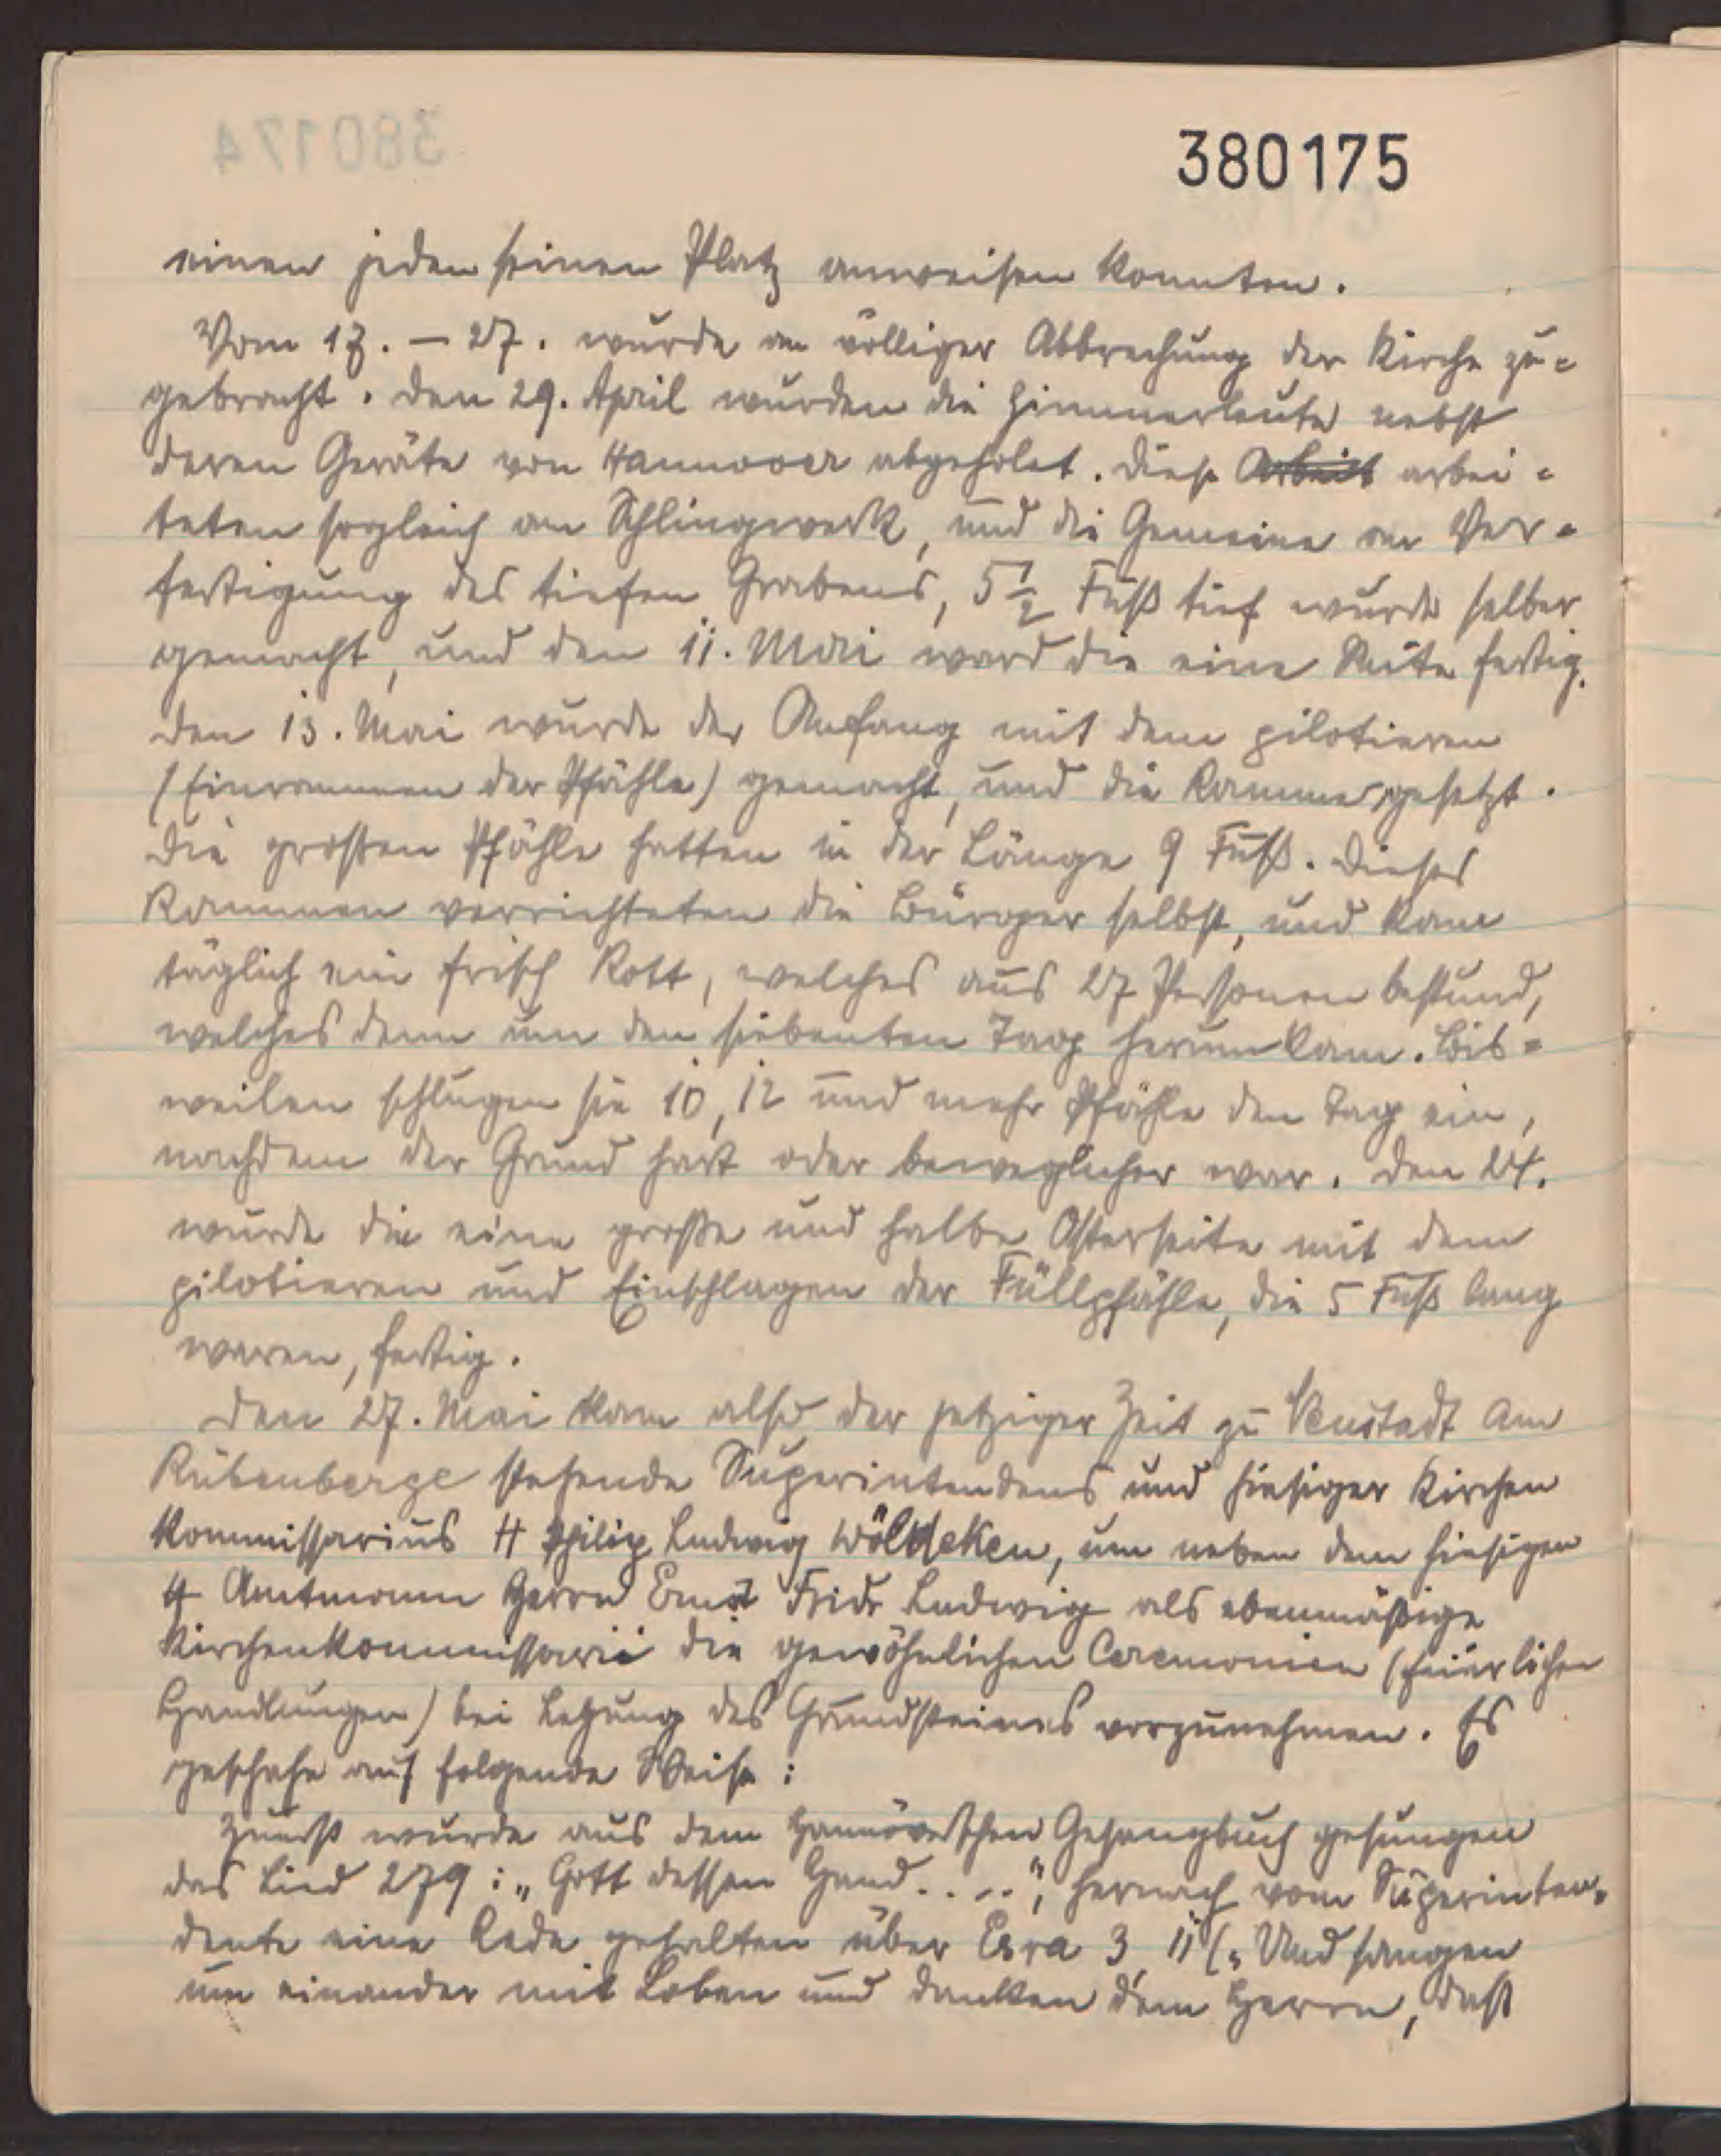 380174
380175
einen jeden seinen Platz anweisen konnten.
Vom 17. – 27. wurde an völliger Abbrechung der Kirche zu=
gebracht. Den 29. April wurden die Zimmerleute nebst
deren Geräte von Hannover abgeholet. Diese Arbeit arbei=
teten sogleich am Schlingwerk, und die Gemeine an Ver=
fertigung des tiefen Grabens, 5 1/2 Fuß tief wurde selber
gemacht, und den 11. Mai ward die eine Seite fertig.
Den 13. Mai wurde der Anfang mit dem pilotieren
(Einrammen der Pfähle) gemacht, und die Ramme gesetzt.
Die grossen Pfähle hatten in der Länge 9 Fuß. Dieses
Rammen verrichteten die Bürger selbst, und kam
täglich ein frisch Rott, welches aus 27 Personen bestund,
welches denn um den siebenten Tag herum kam. Bis=
weilen schlugen sie 10, 12 und mehr Pfähle den Tag ein,
nachdem der Grund hart oder beweglicher war. Den 24.
wurde die eine große und halbe Osterseite mit dem
pilotieren und Einschlagen der Füllpfähle, die 5 Fuß lang
waren, fertig.
Den 27. Mai kam also der jetziger Zeit zu Neustadt am
Rübenberge stehende Superintendens und hiesiger Kirchen
kommissarius H Philip Ludwig Wöldeken, um neben dem hiesigen
H Amtmann Herrn Ernst Fridr Ludwig als ebenmäßige
Kirchenkommissarii die gewöhnlichen Ceremonien (feierlichen
Handlungen) bei Legung des Grundsteines vorzunehmen. Es
geschahe auf folgende Weise:
Zuerst wurde aus dem Hannöverschen Gesangbuch gesungen
das Lied 279: „Gott dessen Hand....", hernach vom Superinten=
dente eine Rede gehalten über Esra 3, 11 („Und sangen
um einander mit Loben und Danken dem Herrn, daß